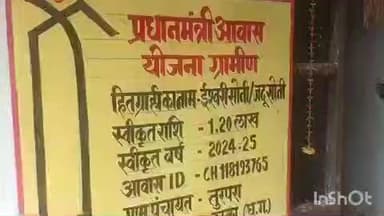 प्रधानमंत्री आवास
योजना ग्रामीण
हितग्राही का नाम - ईश्वरी सोती/जदू सोती
स्वीकृत राशि - 1.20 लाख
स्वीकृत वर्ष - 2024-25
आवास ID - CH118193765
ग्राम पंचायत - तुरपरा
(छ.ग.)
InShOt